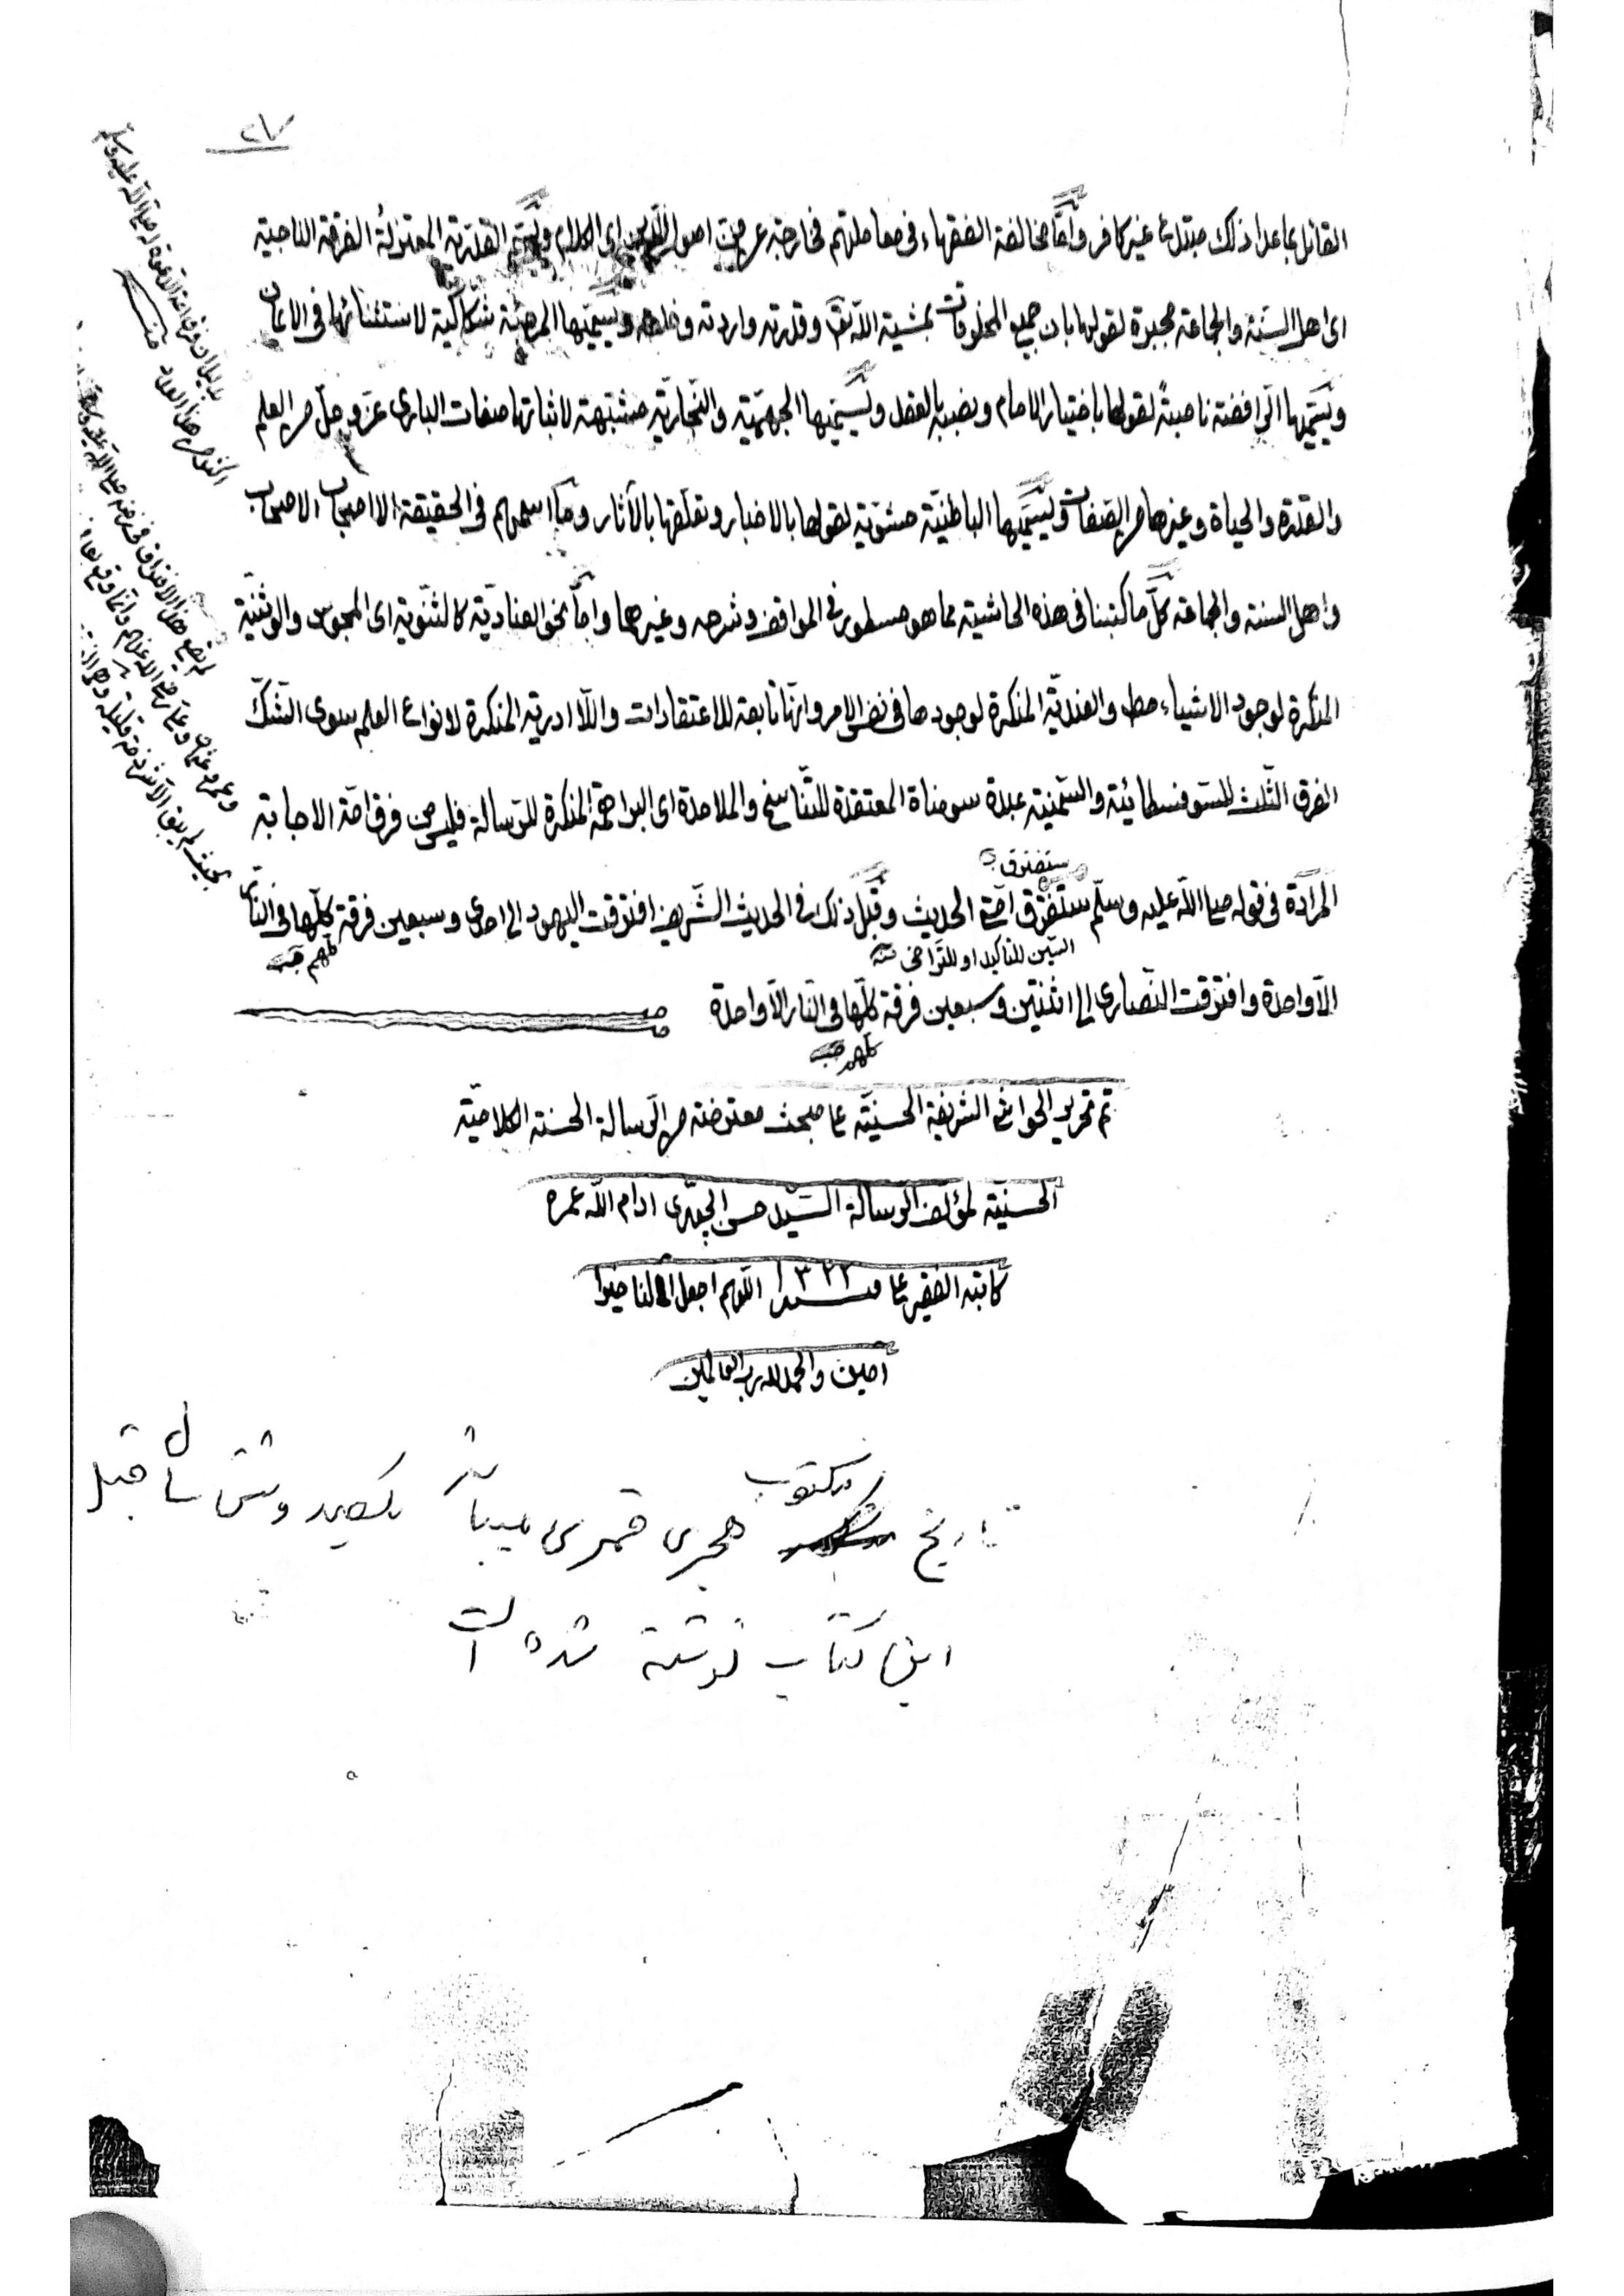 ٢٧
القائل بما عدا ذلك مبتدعا غير كافر وأما مخالفة الفقهاء في معاملتهم فخارجة عن مبحث اصول الدين اى الكلام وتسمى القدرية المعتزلة الفرقة الناجية
اى اهل السنة والجماعة مجبرة لقولها بان جميع المخلوقات بمشية الله تعالى وقدرته وارادته وخلقه وتسميها المرجئة شكاكية لاستثنائها فى الايمان
وتسميها الرافضة ناصبة لقولها باختيار الامام ونصبه بالعقد وتسميها الجهمية والنجارية مشتبهة لاثباتها صفات البارى عز وجل من العلم
والقدرة والحياة وغيرها من الصفات وتسميها الباطنية حشوية لقولها بالاخبار وتعلقها بالآثار وما اسمهم فى الحقيقة الا اصحاب الاصحاب
واهل السنة والجماعة كل ما كتبنا فى هذه الحاشية مما هو مسطور فى المواقف وشرحه وغيرهما واما نحو العنادية كالثنوية اى المجوس والوثنية
المنكرة لوجود الاشياء مط والعندية المنكرة لوجودها فى نفس الامر وانها تابعة للاعتقادات واللاادرية المنكرة لانواع العلم سوى الشك
الفرق الثلث للسوفسطائية والسمنية عبدة سومناة المعتقدة للتناسخ والملاحدة اى البراهمة المنكرة للرسالة فليس من فرق امة الاجابة
ستفترق
المرادة فى قوله صلى الله عليه وسلم ستفرق امتى الحديث وقبل ذلك فى الحديث الشريف افترقت اليهود الى احدى وسبعين فرقة كلها فى النار
السين للتأكيد او للتراخى منه
كلهم
الا واحدة وافترقت النصارى الى اثنتين وسبعين فرقة كلها فى النار الا واحدة
كلهم
تم تحرير الحواشى الشريفة الحسنية على مبحث معترضة من الرسالة الحسنة الكلامية
الحسنية لمؤلف الرسالة السيد حسن الچورى ادام الله عمره
كاتبه الفقير على سنة ١٣٢٢ اللهم اجعل لنا خيرا
امين والحمد لله رب العالمين
تاريخ مكتوب هجرى قمرى ميباشد يكصد وشش سال قبل
اين كتاب نوشته شده است